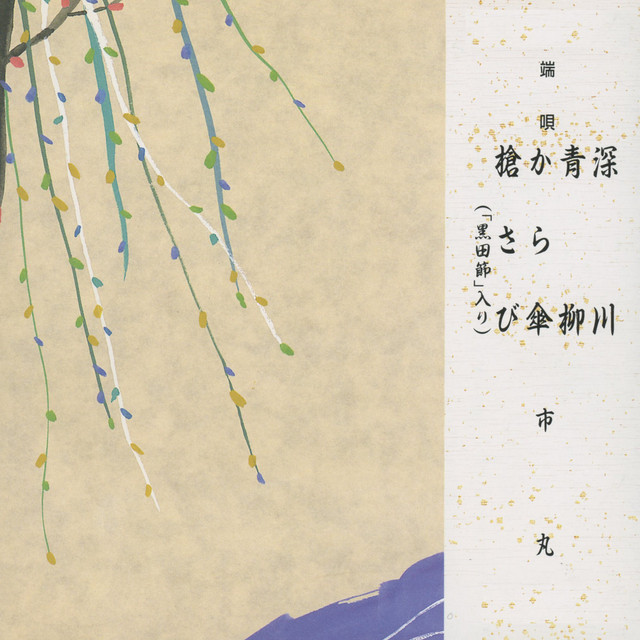 端唄
深川
青柳
から傘
槍さび
(「黒田節」入り)
市丸